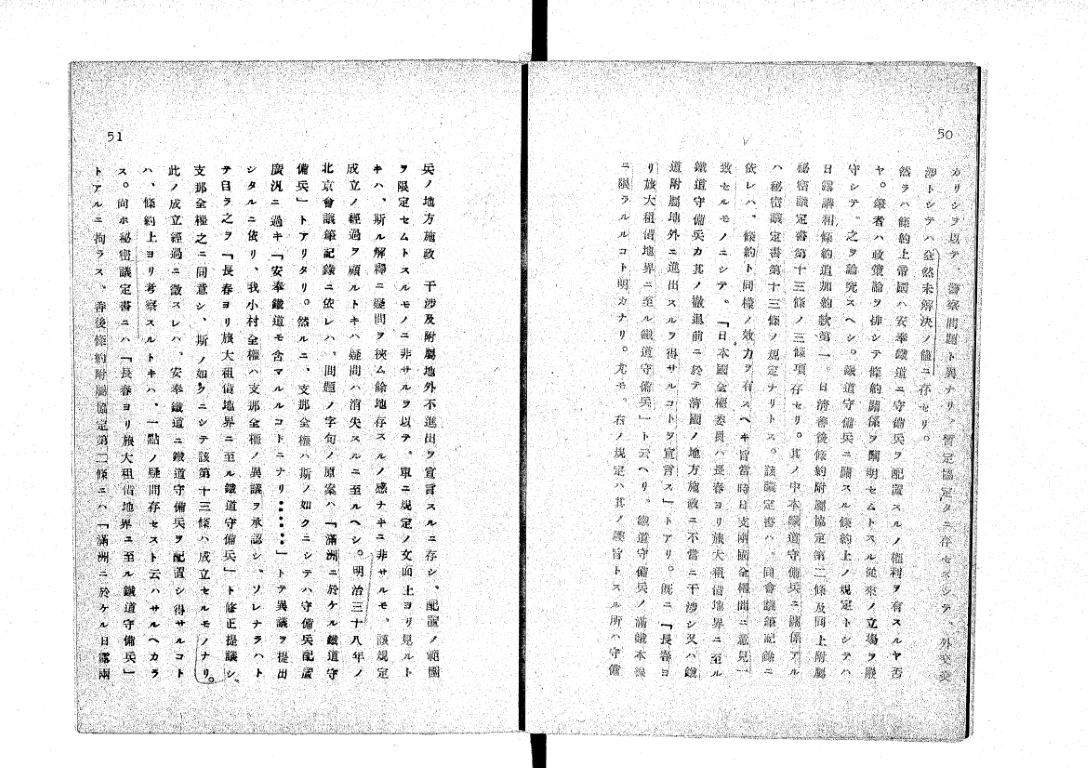 50
カリシヲ以テ、警察問題ト異ナリ、暫定協定タニ存セスシテ、外交交
渉トシテハ全然未解決ノ儘ニ存セリ。
然ラハ條約上帝國ハ安奉鐵道ニ守備兵ヲ配置スルノ權利ヲ有スルヤ否
ヤ。録者ハ政策論ヲ排シテ條約關係ヲ闡明セムトスル從來ノ立場ヲ嚴
守シテ、之ヲ論究スヘシ。鐵道守備兵ニ關スル條約上ノ規定トシテハ
日露講和條約追加約款第一、日清善後條約附屬協定第二條及同上附屬
秘密議定書第十三條ノ三條項存セリ。其ノ中本鐵道守備兵ニ關係アル
ハ秘密議定書第十三條ノ規定ナリトス。該議定書ハ、同會議筆記錄ニ
依レハ、條約ト同樣ノ效力ヲ有スヘキ旨當時日支兩國全權間ニ意見一
致セルモノニシテ、「日本國全權委員ハ長春ヨリ旅大租借地界ニ至ル
鐵道守備兵カ其ノ撤退前ニ於テ清國ノ地方施政ニ不當ニ干涉シ又ハ鐵
道附屬地外ニ進出スルヲ得サルコトヲ宣言ス」トアリ。既ニ「長春ヨ
リ旅大租借地界ニ至ル鐵道守備兵」ト云ヘリ。鐵道守備兵ノ滿鐵本線
ニ限ラルルコト明カナリ。尤モ、右ノ規定ハ其ノ趣旨トスル所ハ守備
51
兵ノ地方施政ノ干涉及附屬地外不進出ヲ宣言スルニ存シ、配置ノ範圍
ヲ限定セムトスルモノニ非サルヲ以テ、單ニ規定ノ文面上ヨリ見ルト
キハ、斯ル解釋ニ疑問ヲ挾ム餘地存スルノ感ナキニ非サルモ、該規定
成立ノ經過ヲ顧ルトキハ疑問ハ消失スルニ至ルヘシ。明治三十八年ノ
北京會議筆記錄ニ依レハ、問題ノ字句ノ原案ハ「滿洲ニ於ケル鐵道守
備兵」トアリタリ。然ルニ、支那全權ハ斯ノ如クニシテハ守備兵配置
廣汎ニ過キ「安奉鐵道モ含マルルコトニナリ・・・・・・」トテ異議ヲ提出
シタルニ依リ、我小村全權ハ支那全權ノ異議ヲ承認シ、ソレナラハト
テ自ラ之ヲ「長春ヨリ旅大租借地界ニ至ル鐵道守備兵」ト修正提議シ、
支那全權之ニ同意シ、斯ノ如クニシテ該第十三條ハ成立セルモノナリ。
此ノ成立經過ニ徵スレハ、安奉鐵道ニ鐵道守備兵ヲ配置シ得サルコト
ハ、條約上ヨリ考察スルトキハ、一點ノ疑問存セスト云ハサルヘカラ
ス。尚ホ秘密議定書ニハ「長春ヨリ旅大租借地界ニ至ル鐵道守備兵」
トアルニ拘ラス、善後條約附屬協定第二條ニハ「滿洲ニ於ケル日露兩